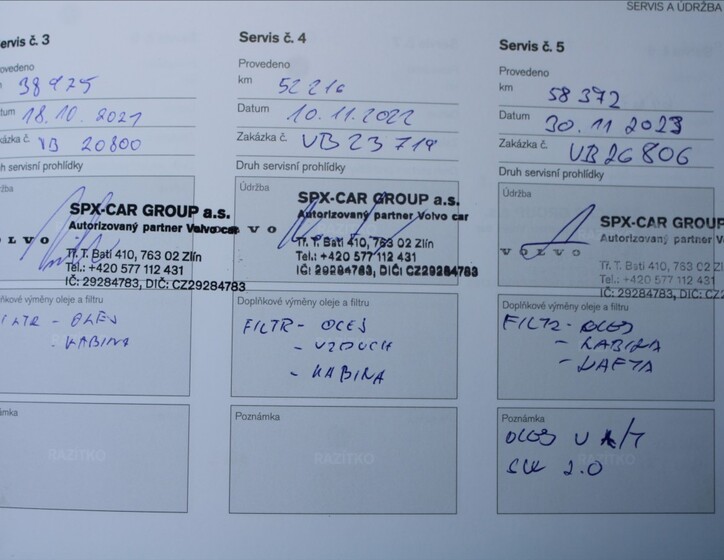 SERVIS A ÚDRŽBA
ervis č. 3
ovedeno
38 975
tum 18.10.2021
kázka č. VB 20800
uh servisní prohlídky
žba
SPX-CAR GROUP a.s.
Autorizovaný partner Volvo car
OLVO
Tř. T. Bati 410, 763 02 Zlín
Tel.: +420 577 112 431
IČ: 29284783, DIČ: CZ29284783
lňkové výměny oleje a filtru
ILTR - OLEJ
- KABINA
mka
RAZÍTKO
Servis č. 4
Provedeno
km 52 216
Datum 10.11.2022
Zakázka č. VB 23 719
Druh servisní prohlídky
Údržba
SPX-CAR GROUP a.s.
Autorizovaný partner Volvo car
VO
Tř. T. Bati 410, 763 02 Zlín
Tel.: +420 577 112 431
IČ: 29284783, DIČ: CZ29284783
Doplňkové výměny oleje a filtru
FILTR - OLEJ
- VZDUCH
- KABINA
Poznámka
RAZÍTKO
Servis č. 5
Provedeno
km 58 372
Datum 30.11 2023
Zakázka č. VB26806
Druh servisní prohlídky
Údržba
SPX-CAR GROUP
Autorizovaný partner V
VOLVO
Tř. T. Bati 410, 763 02 Z
Tel.: +420 577 112 431
IČ: 29284783, DIČ: CZ
Doplňkové výměny oleje a filtru
FILTR - OLEJ
- KABINA
- NAFTA
Poznámka
OLEJ V A/T
SW 2.0
RAZÍTKO